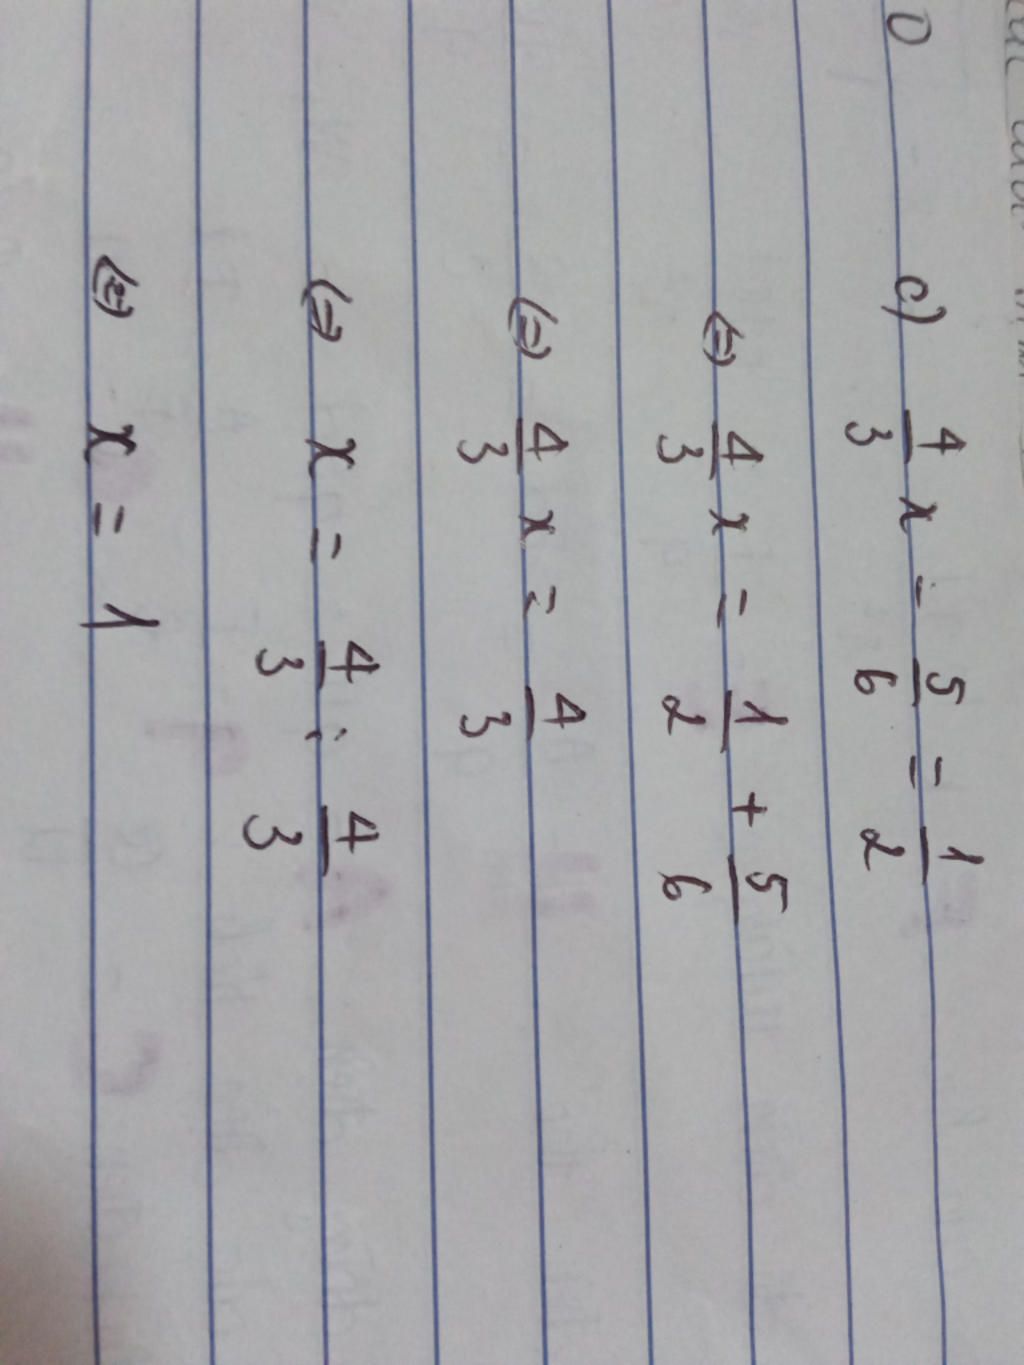 c) 4/3 x - 5/6 = 1/2
(=) 4/3 x = 1/2 + 5/6
(=) 4/3 x = 4/3
(=) x = 4/3 : 4/3
(=) x = 1